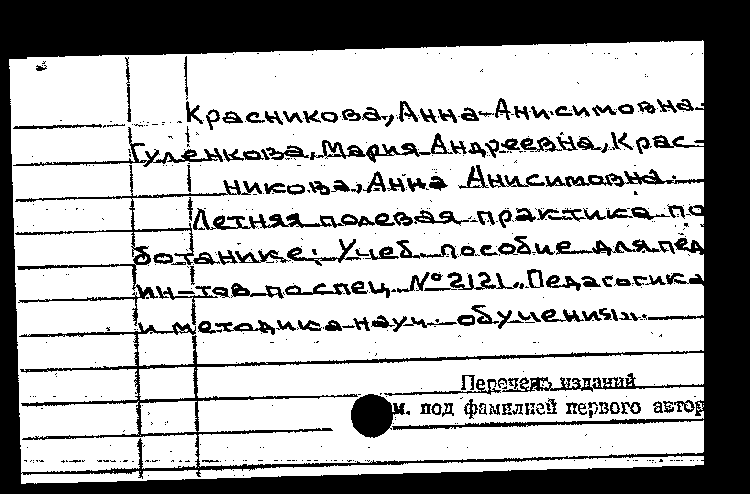 Красникова, Анна Анисимовна.
Гуленкова, Мария Андреевна, Крас-
никова, Анна Анисимовна.
Летняя полевая практика по
ботанике: Учеб. пособие для пед
ин-тов по спец. № 2121 „Педагогика
и методика нач. обучения".
Перечень изданий
м. под фамилией первого автор